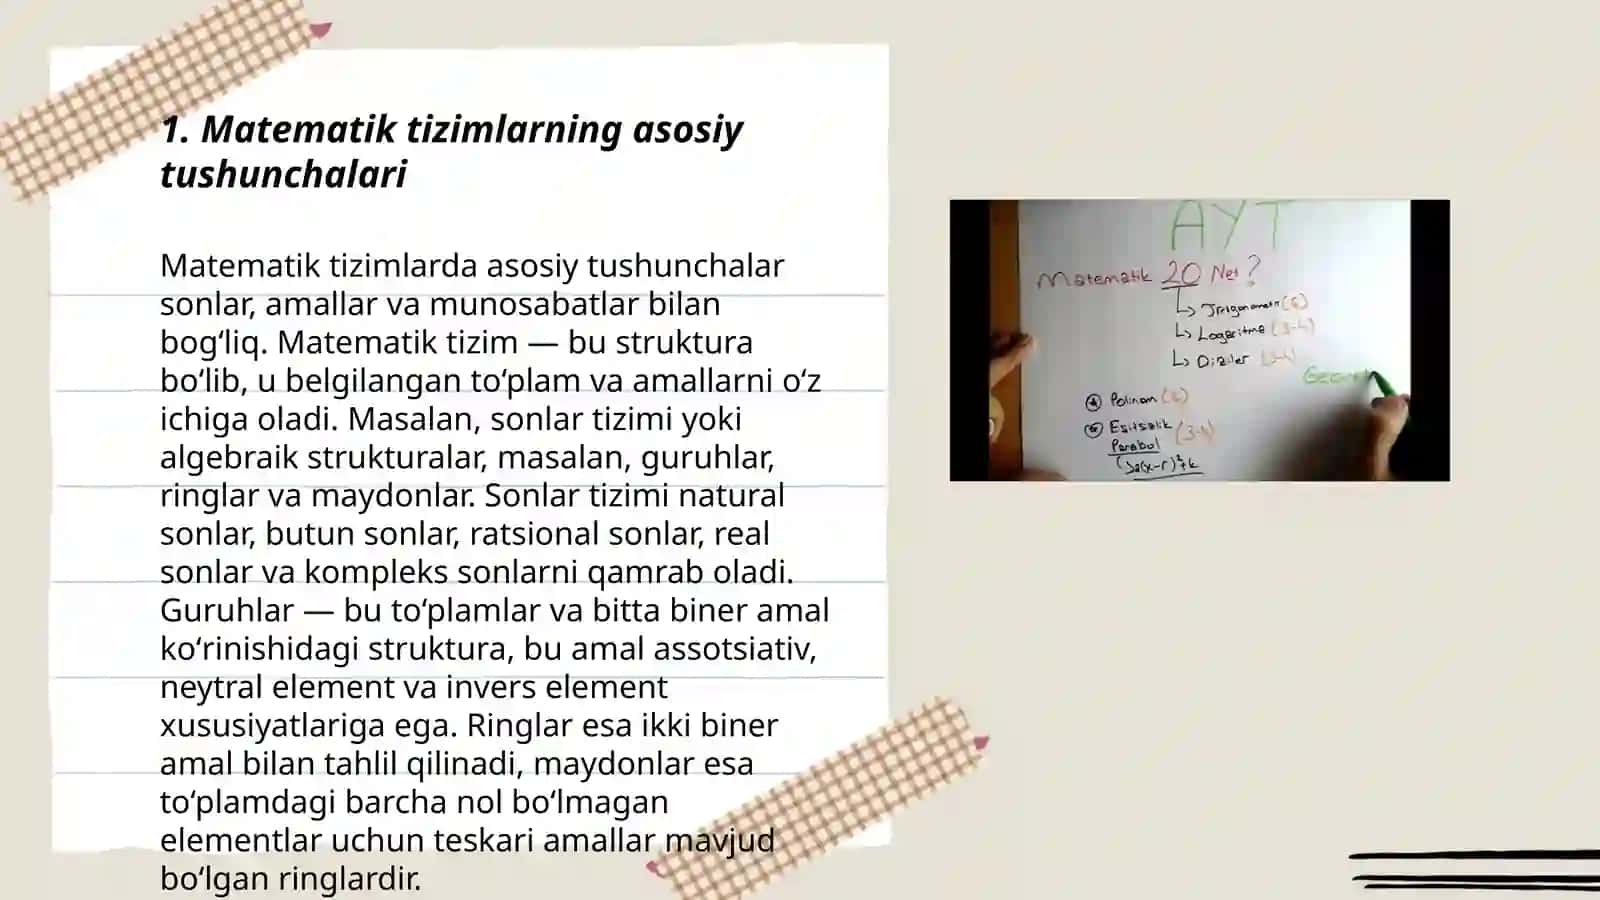 1. Matematik tizimlarning asosiy
tushunchalari
Matematik tizimlarda asosiy tushunchalar
sonlar, amallar va munosabatlar bilan
bog‘liq. Matematik tizim — bu struktura
bo‘lib, u belgilangan to‘plam va amallarni o‘z
ichiga oladi. Masalan, sonlar tizimi yoki
algebraik strukturalar, masalan, guruhlar,
ringlar va maydonlar. Sonlar tizimi natural
sonlar, butun sonlar, ratsional sonlar, real
sonlar va kompleks sonlarni qamrab oladi.
Guruhlar — bu to‘plamlar va bitta biner amal
ko‘rinishidagi struktura, bu amal assotsiativ,
neytral element va invers element
xususiyatlariga ega. Ringlar esa ikki biner
amal bilan tahlil qilinadi, maydonlar esa
to‘plamdagi barcha nol bo‘lmagan
elementlar uchun teskari amallar mavjud
bo‘lgan ringlardir.
AYT
Matematik 20 Net?
Trigonometri
Logaritma (3-4)
Diziler (3-4)
Polinom
Eşitsizlik (3-4)
Parabol